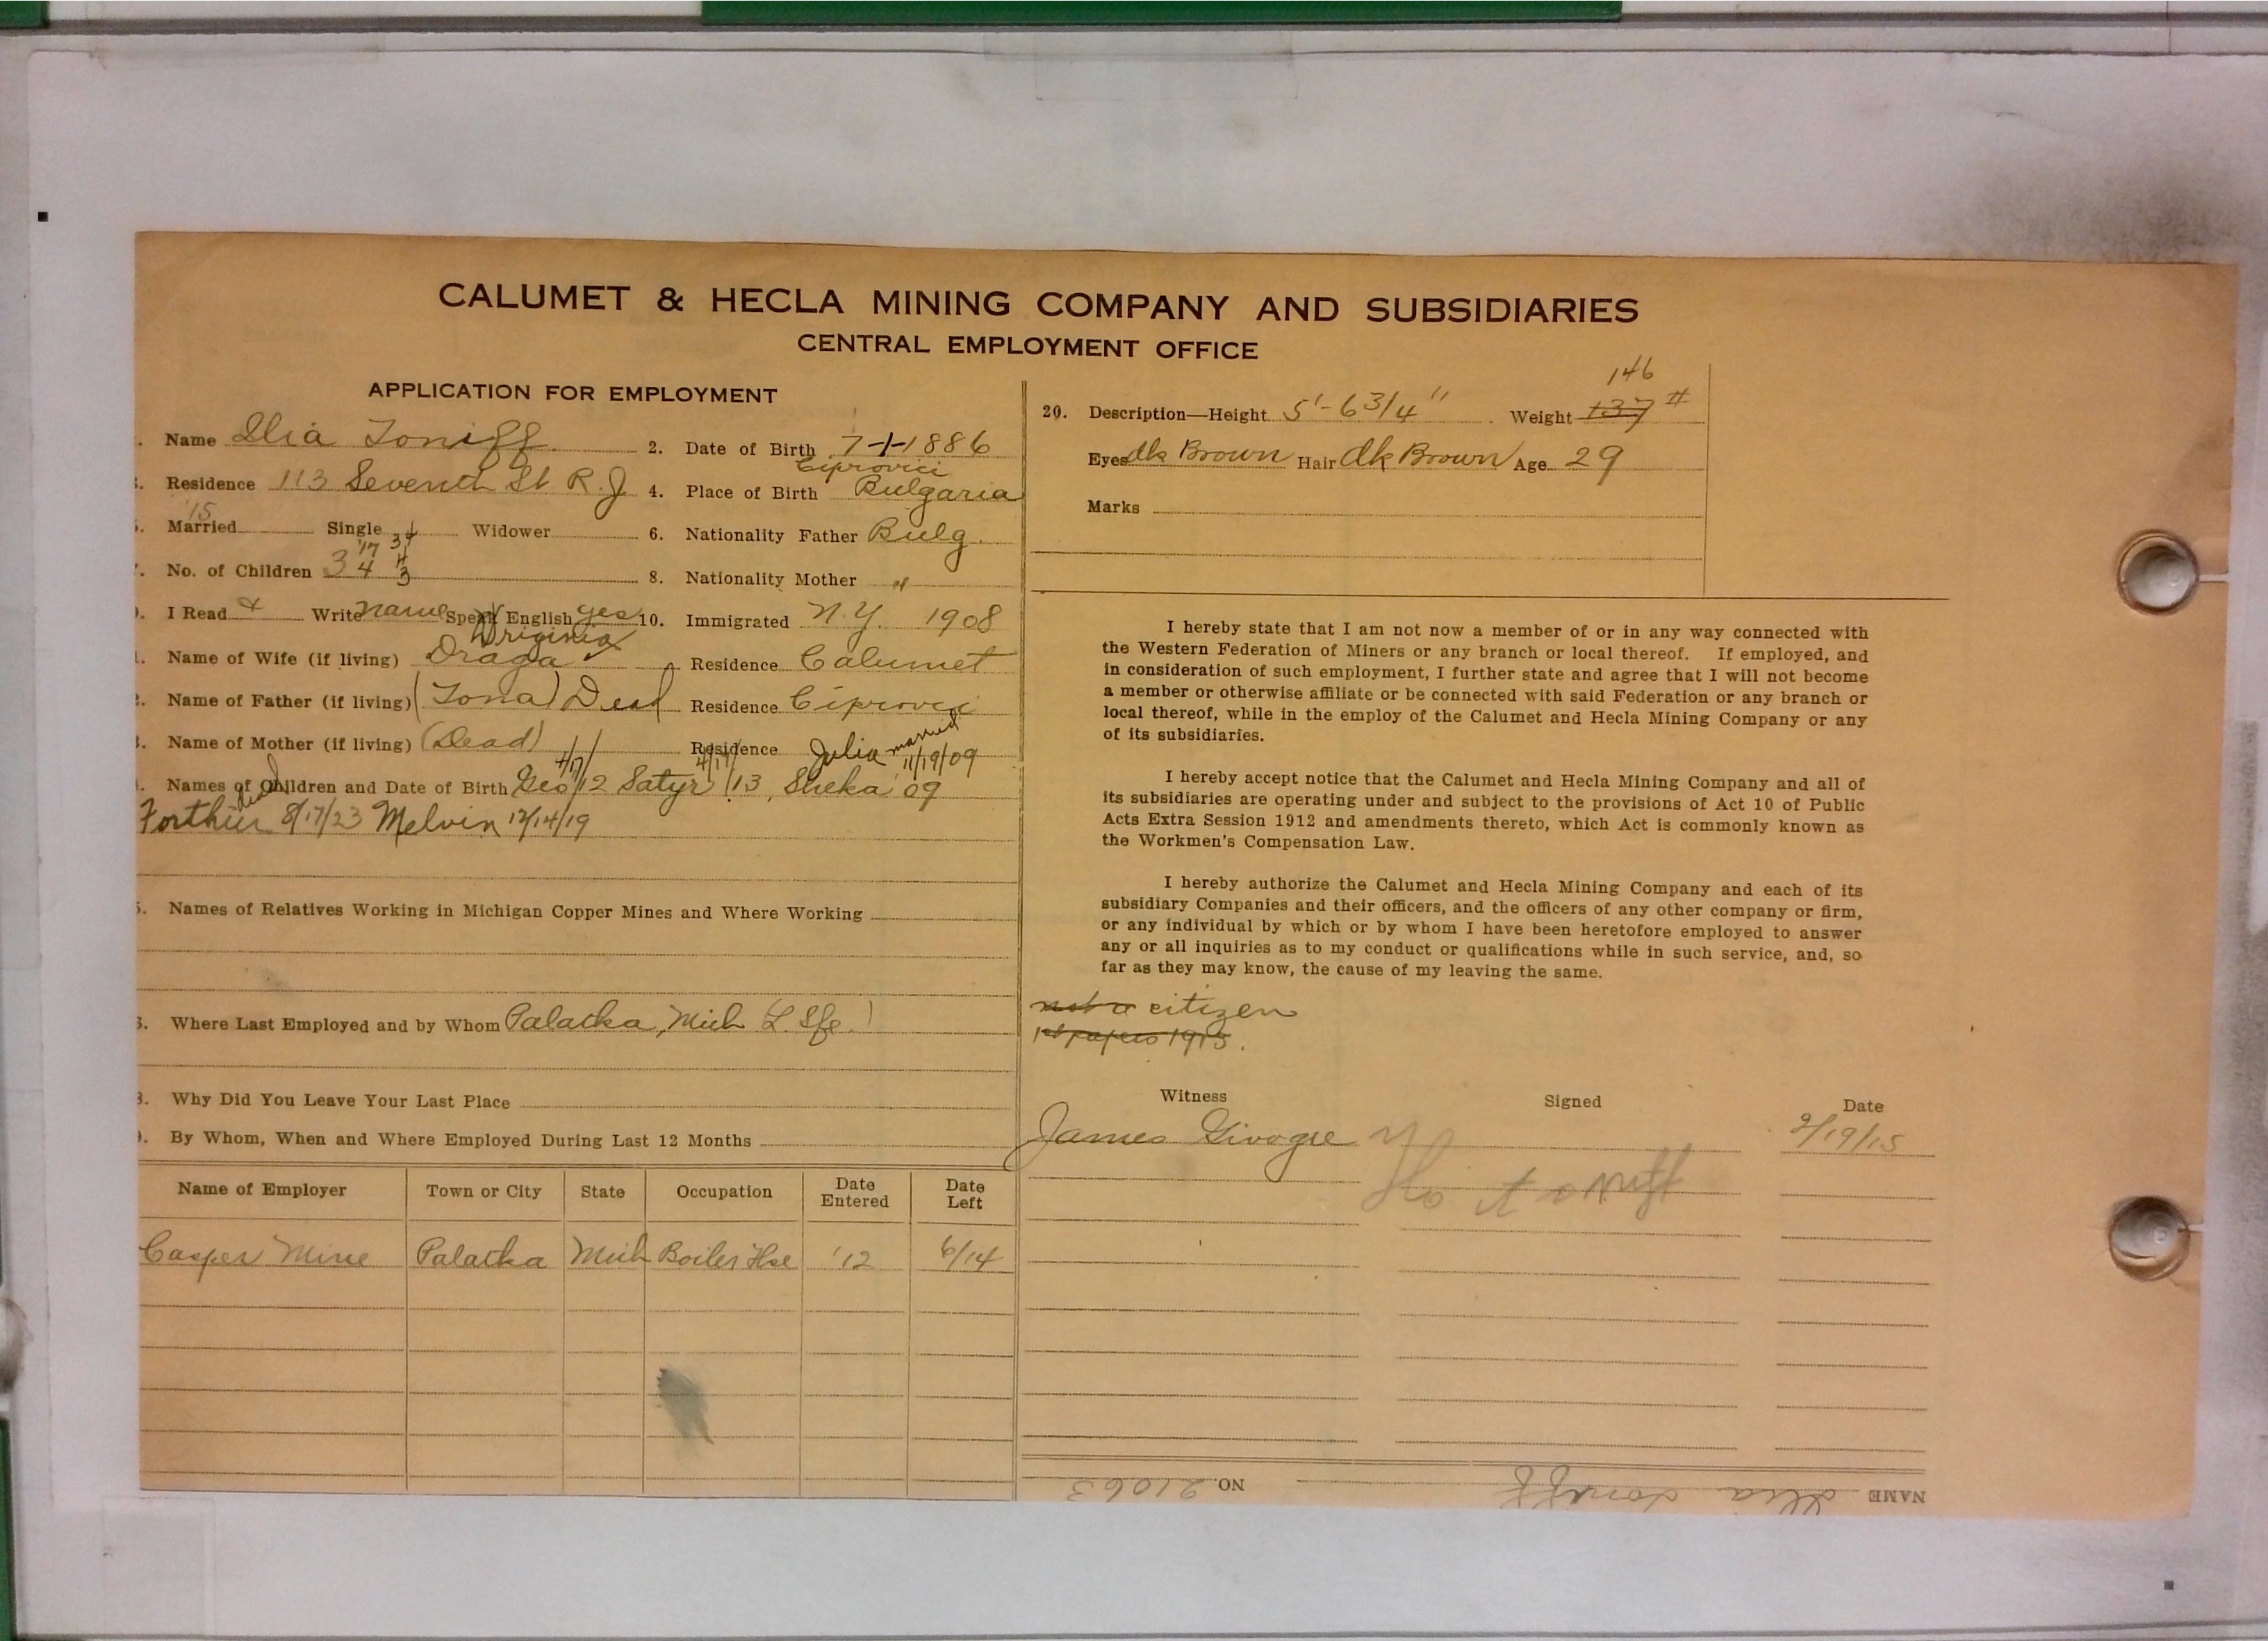 CALUMET & HECLA MINING COMPANY AND SUBSIDIARIES
CENTRAL EMPLOYMENT OFFICE
APPLICATION FOR EMPLOYMENT
. Name Ilia Toniff 2. Date of Birth 7-1-1886
Ciprovici
. Residence 113 Seventh St R. J. 4. Place of Birth Bulgaria
'15
. Married Single Widower 6. Nationality Father Bulg.
'17 34
. No. of Children 3 4 3 8. Nationality Mother "
. I Read & Write name Speak English yes 10. Immigrated N.Y. 1908
Virginia
. Name of Wife (if living) Draga Residence Calumet
. Name of Father (if living) (Tona) Dead Residence Ciprovci
. Name of Mother (if living) (Dead) Residence Julia married 11/19/09
4/17/ 4/17/
. Names of Children and Date of Birth Geo/12 Satyr /13, Sheka '09
8/17/23 Melvin 12/14/19
5. Names of Relatives Working in Michigan Copper Mines and Where Working
6. Where Last Employed and by Whom Palatka, Mich
8. Why Did You Leave Your Last Place
9. By Whom, When and Where Employed During Last 12 Months
Name of Employer Town or City State Occupation Date Entered Date Left
Casper Mine Palatka Mich Boiler Hse '12 6/14
146
20. Description—Height 5'-6 3/4" Weight 137 #
Eyes dk Brown Hair dk Brown Age 29
Marks
I hereby state that I am not now a member of or in any way connected with
the Western Federation of Miners or any branch or local thereof. If employed, and
in consideration of such employment, I further state and agree that I will not become
a member or otherwise affiliate or be connected with said Federation or any branch or
local thereof, while in the employ of the Calumet and Hecla Mining Company or any
of its subsidiaries.
I hereby accept notice that the Calumet and Hecla Mining Company and all of
its subsidiaries are operating under and subject to the provisions of Act 10 of Public
Acts Extra Session 1912 and amendments thereto, which Act is commonly known as
the Workmen's Compensation Law.
I hereby authorize the Calumet and Hecla Mining Company and each of its
subsidiary Companies and their officers, and the officers of any other company or firm,
or any individual by which or by whom I have been heretofore employed to answer
any or all inquiries as to my conduct or qualifications while in such service, and, so
far as they may know, the cause of my leaving the same.
not a citizen
1st papers 1913.
Witness Signed Date
James 2/19/15
NAME Ilia Toniff NO. 21063